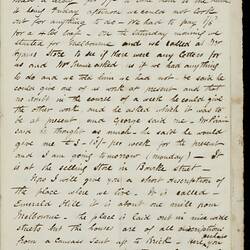 a long Sunday afternoon we could not look
out for anything to do - We had to pay 1/6
for a total loaf - On the Saturday morning we
started for Melbourne and we called at Mr
Store to see if there were any letters for
us and Mr asked us if we had anything
to do and we told him we had not - he said he
could give one of us work at present and that
no doubt in the course of a week he could give
the other work and he asked which it was to
be at present and George said me - Mr
said he thought as much - he said he would
give me £ 3 - 15/- per week for the present
and I am going tomorrow (monday) - It
is at the selling Store in Bourke Street -
Now I will give you a short description of
the place where we live - It is called -
Emerald Hill it is about one mile from
Melbourne - the place is laid out in nice wide
streets but the houses are of all descriptions
from a Canvass Tent up to Brick - Here you
perhaps